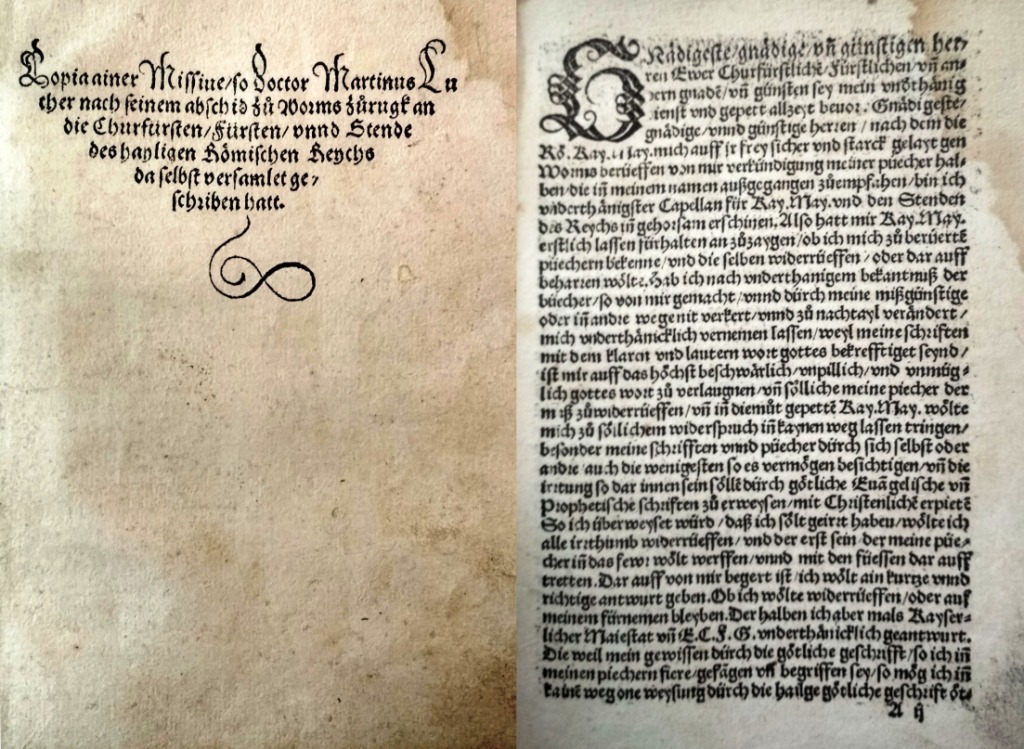 Copia ainer Missiue/so Doctor Martinus Lu
ther nach seinem abschid zů Worms zůrugk an
die Churfürsten/Fürsten/vnnd Stende
des hayligen Römischen Reychs
da selbst versamlet ge⸗
schriben hatt.
GNädigeste/gnädige vñ günstigen her⸗
ren Ewer Churfürstliche/Fürstlichen vñ an⸗
dern gnadē/vñ günsten sey mein vndthänig
dienst vnd gepett allzeyt beuor. Gnädigeste/
gnädige/vnnd günstige herren/nach dem die
Rö. Kay. May. mich auff ir frey sicher vnd starck gelayt gen
Worms berüeffen von mir verkündigung meiner püecher hal⸗
ben/die iñ meinem namen außgegangen zůempfahen/bin ich
vnderthänigster Capellan für Kay. May. vnd den Stenden
des Reychs iñ gehorsam erschinen. Also hatt mir Kay. May.
erstlich lassen fürhalten an zůzaygen/ob ich mich zů berüertē
püechern bekenne/vnd die selben widerrüeffen/oder dar auff
beharren wölte. Hab ich nach vnderthanigem bekantnuß der
büecher/so von mir gemacht/vnnd dürch meine mißgünstige
oder iñ andre wege nit verkert/vnnd zů nachtayl verändert/
mich vnderthänicklich vernemen lassen/weyl meine schriften
mit dem klaren vnd lautern wort gottes bekrefftiget seynd/
ist mir auff das höchst beschwärlich/vnpillich/vnd vnmüg⸗
lich gottes wort zů verlaugnen/vñ sölliche meine piecher der
m ß zůwiderrüeffen/vñ iñ diemůt gepettē Kay. May. wölte
mich zů söllichem widerspruch iñ kaynen weg lassen tringen/
besonder meine schrifften vnnd püecher dürch sich selbst oder
andre auch die wenigesten so es vermögen besichtigen/vñ die
irrtung so dar innen sein söllē dürch götliche Euāgelische vñ
Prophetische schriften zů erweysen/mit Christenlichē erpietē
So ich überweyset würd/daß ich sölt geirrt haben/wölte ich
alle irrthumb widerrüeffen/vnd der erst sein der meine püe⸗
cher iñ das fewr wölt werffen/vnnd mit den füessen dar auff
tretten. Dar auff von mir begert ist/ich wölt ain kurtze vnnd
richtige antwurt geben. Ob ich wölte widerrüeffen/oder auf
meinem fürnemen bleyben. Der halben ich aber mals Kayser⸗
licher Maiestat vñ E. C. F. G. vnderthänicklich geantwurt.
Die weil mein gewissen dürch die götliche geschrifft/so ich iñ
meinen piechern fiere/gefägen vñ begriffen sey/so mög ich iñ
kainē weg one weysung dürch die hailge götliche geschrift ôt⸗
A ij